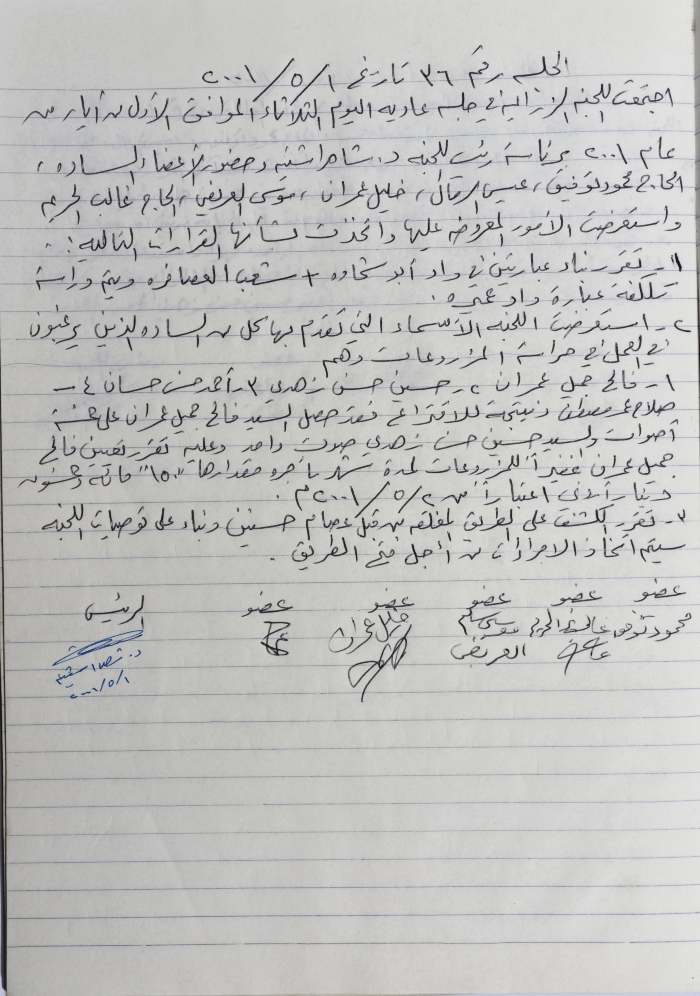 الجلسه رقم ٣٦ تاريخ ١/٥/٢٠٠١
اجتمعت اللجنه الزراعيه في جلسه عاديه اليوم الثلاثاء الموافق الأول من أيار من
عام ٢٠٠١ برئاسة رئيس اللجنه د. شاهر اشتيه وحضور الأعضاء الساده،
الحاج محمود توفيق، عيسى الرمال، خليل عمران، موسى العريض، الحاج غالب الحريم
واستعرضت الأمور المعروضه عليها واتخذت بشأنها القرارات التاليه:
١- تقرر بناء عبارتين في واد أبو شحاده + شعب العصافره ويتم دراسة
تكلفة عبارة واد عميره.
٢- استعرضت اللجنه الأسماء التي تقدم بها كل من الساده الذين يرغبون
في العمل في حراسة المزروعات وهم
١- فالح جميل عمران ٢- حسين حسن زهدي ٣- أحمد حسن حسان ٤-
صلاح عمر مصطفى ونتيجة للاقتراع فقد حصل السيد فالح جميل عمران على خمسة
أصوات والسيد حسين حسن زهدي صوت واحد وعليه تقرر تعيين فالح
جميل عمران خفيراً للمزروعات لمدة شهر بأجره مقدارها "١٥٠" مائة وخمسون
دينار أردني اعتباراً من ٢/٥/٢٠٠١م.
٣- تقرر الكشف على الطريق المغلقه من قبل عصام حسنين وبناء على توصيات اللجنه
سيتم اتخاذ الاجراءات من أجل فتح الطريق.
عضو عضو عضو عضو عضو الرئيس
محمود توفيق غالب الحريم موسى خليل عمران
العريض
د. شاهر اشتيه
٢٠٠١/٥/١